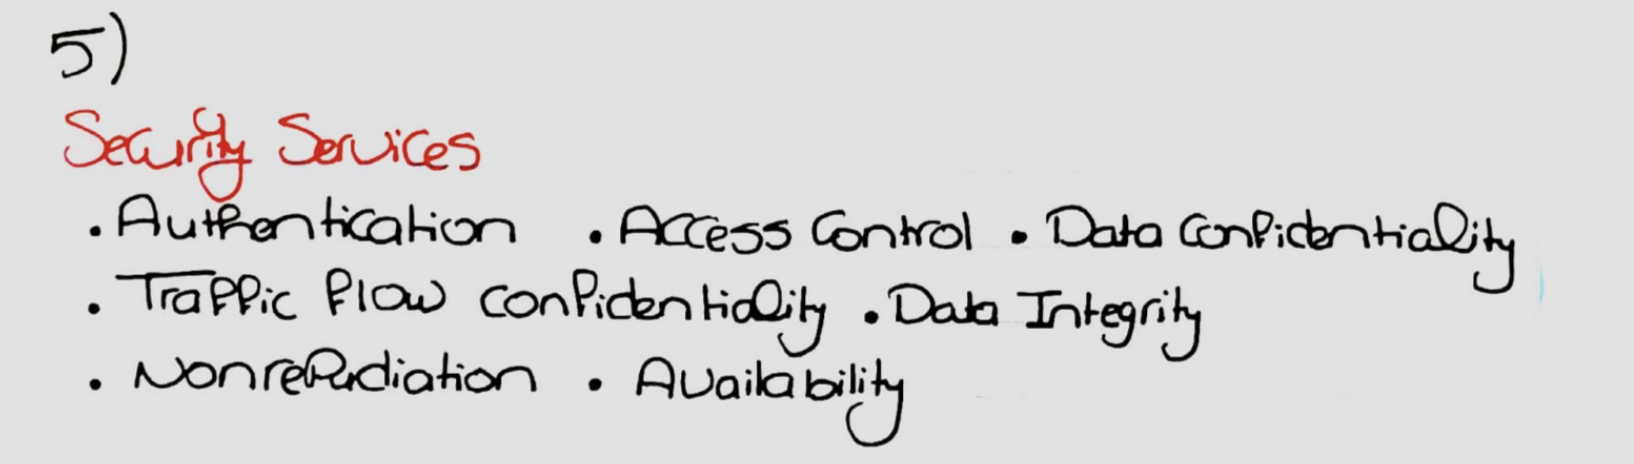 5)
Security Services
. Authentication . Access Control . Data Confidentiality
. Traffic flow confidentiality . Data Integrity
. Nonrepudiation . Availability